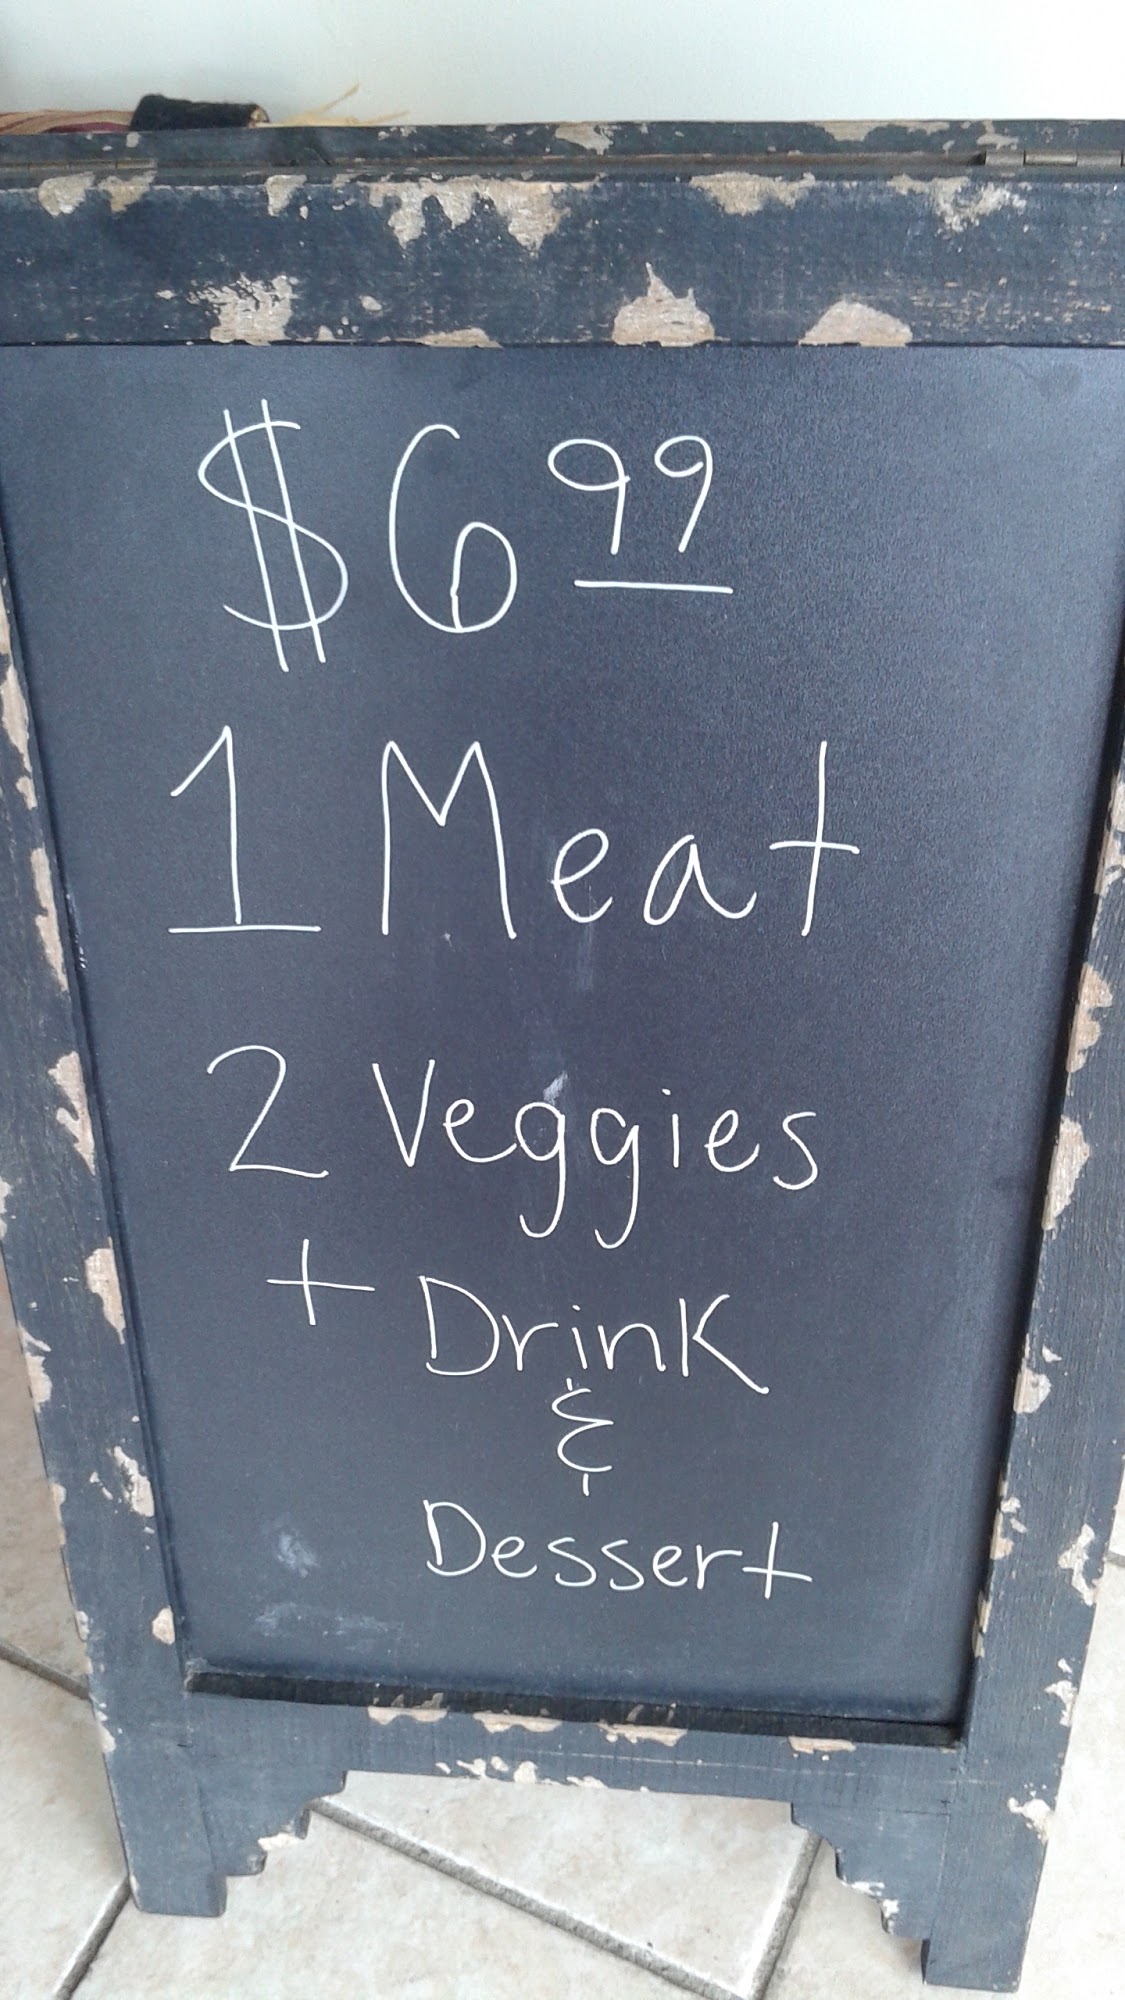 $6 99
1 Meat
2 Veggies
+ Drink
&
Dessert